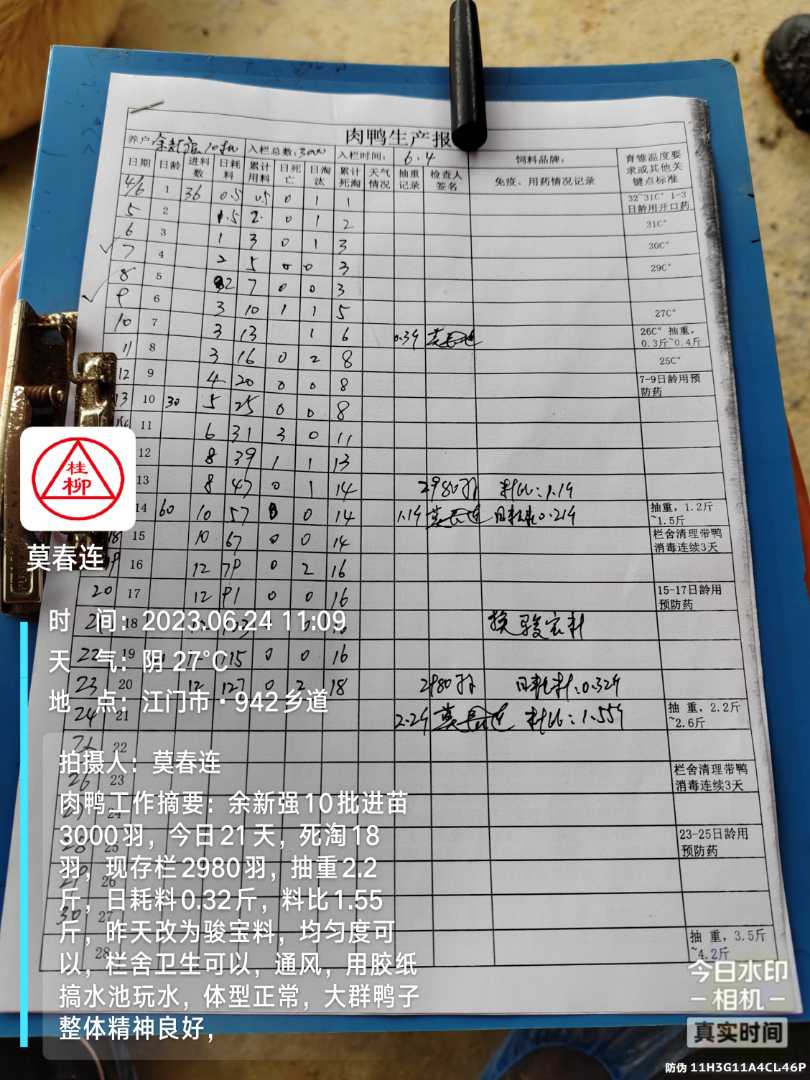 肉鸭生产报
养户:余新强10批 入栏总数:3000 入栏时间: 6.4 饲料品牌: 育雏温度要求或其他关键点标准
日期 日龄 进料数 日耗料 累计用料 日死亡 日淘汰 累计死淘 天气情况 抽重记录 检查人签名 免疫、用药情况记录
4/6 1 36 0.5 0.5 0 1 1 32~31C° 1-3日龄用开口药
5 2 1.5 2. 0 1 2 31C°
6 3 1 3 0 1 3 30C°
7 4 2 5 0 0 3 29C°
8 5 2 7 0 0 3
9 6 3 10 1 1 5 27C°
10 7 3 13 1 6 0.39 莫春连 26C° 抽重,0.3斤~0.4斤
11 8 3 16 0 2 8 25C°
12 9 4 20 0 0 8 7-9日龄用预防药
13 10 30 5 25 0 0 8
11 6 31 3 0 11
12 8 39 1 1 13
13 8 47 0 1 14 2980羽 料比:1.19
14 60 10 57 0 14 1.19 莫春连 日耗料0.219 抽重,1.2斤~1.5斤
15 10 67 0 0 14 栏舍清理带鸭消毒连续3天
16 12 79 0 2 16
20 17 12 91 0 0 16 15-17日龄用预防药
18 换骏宝料
22 19 15 0 0 16
23 20 12 127 0 2 18 2980羽 日耗料:0.329
24 21 2.29 莫春连 料比:1.559 抽重,2.2斤~2.6斤
22
26 23 栏舍清理带鸭消毒连续3天
25 23-25日龄用预防药
26
30 27
28 抽重,3.5斤~4.2斤
桂柳
莫春连
时 间:2023.06.24 11:09
天 气:阴 27°C
地 点:江门市·942乡道
拍摄人:莫春连
肉鸭工作摘要:余新强10批进苗
3000羽,今日21天,死淘18
羽,现存栏2980羽,抽重2.2
斤,日耗料0.32斤,料比1.55
斤,昨天改为骏宝料,均匀度可
以,栏舍卫生可以,通风,用胶纸
搞水池玩水,体型正常,大群鸭子
整体精神良好,
今日水印
-相机-
真实时间
防伪 11H3G11A4CL46P